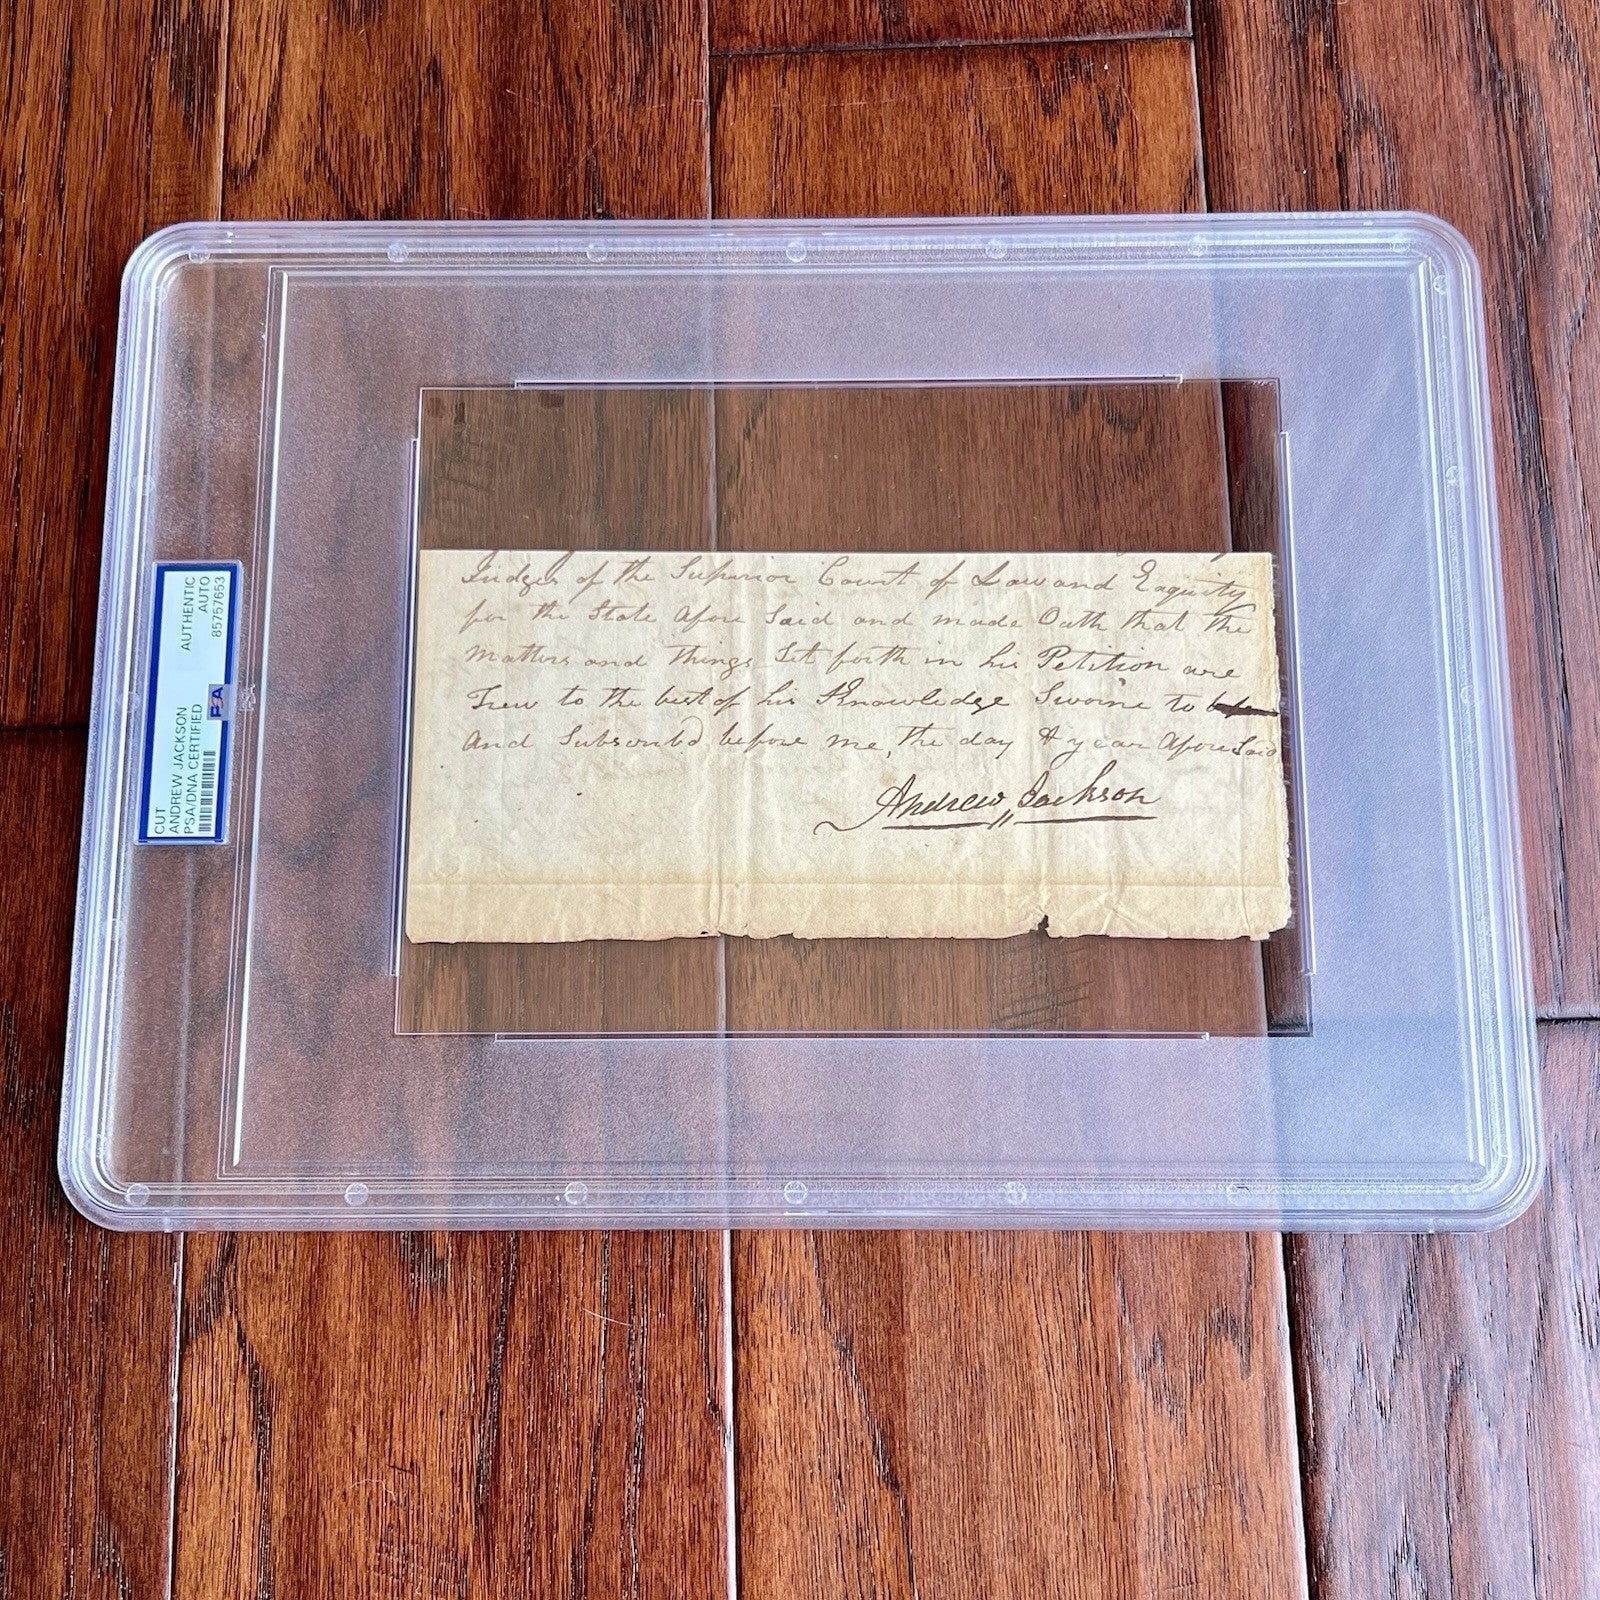 CUT
ANDREW JACKSON
PSA/DNA CERTIFIED
AUTHENTIC
AUTO
85757653
PSA
Judges of the Superior Court of Law and Eaquity
for the State afore Said and made Oath that the
Matters and things Set forth in his Petition are
Trew to the best of his Knowledge Sworne to
and Subscribd before me, the day & year afore Said
Andrew Jackson